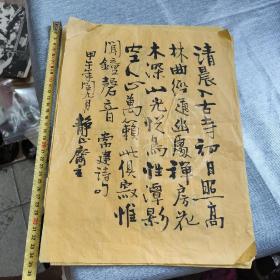 清晨入古寺初日照高
林曲徑通幽處禅房花
木深山光悦鳥性潭影
空人心萬籟此俱寂惟
聞鐘磬音 常建詩句
甲午年 月 静 齋主